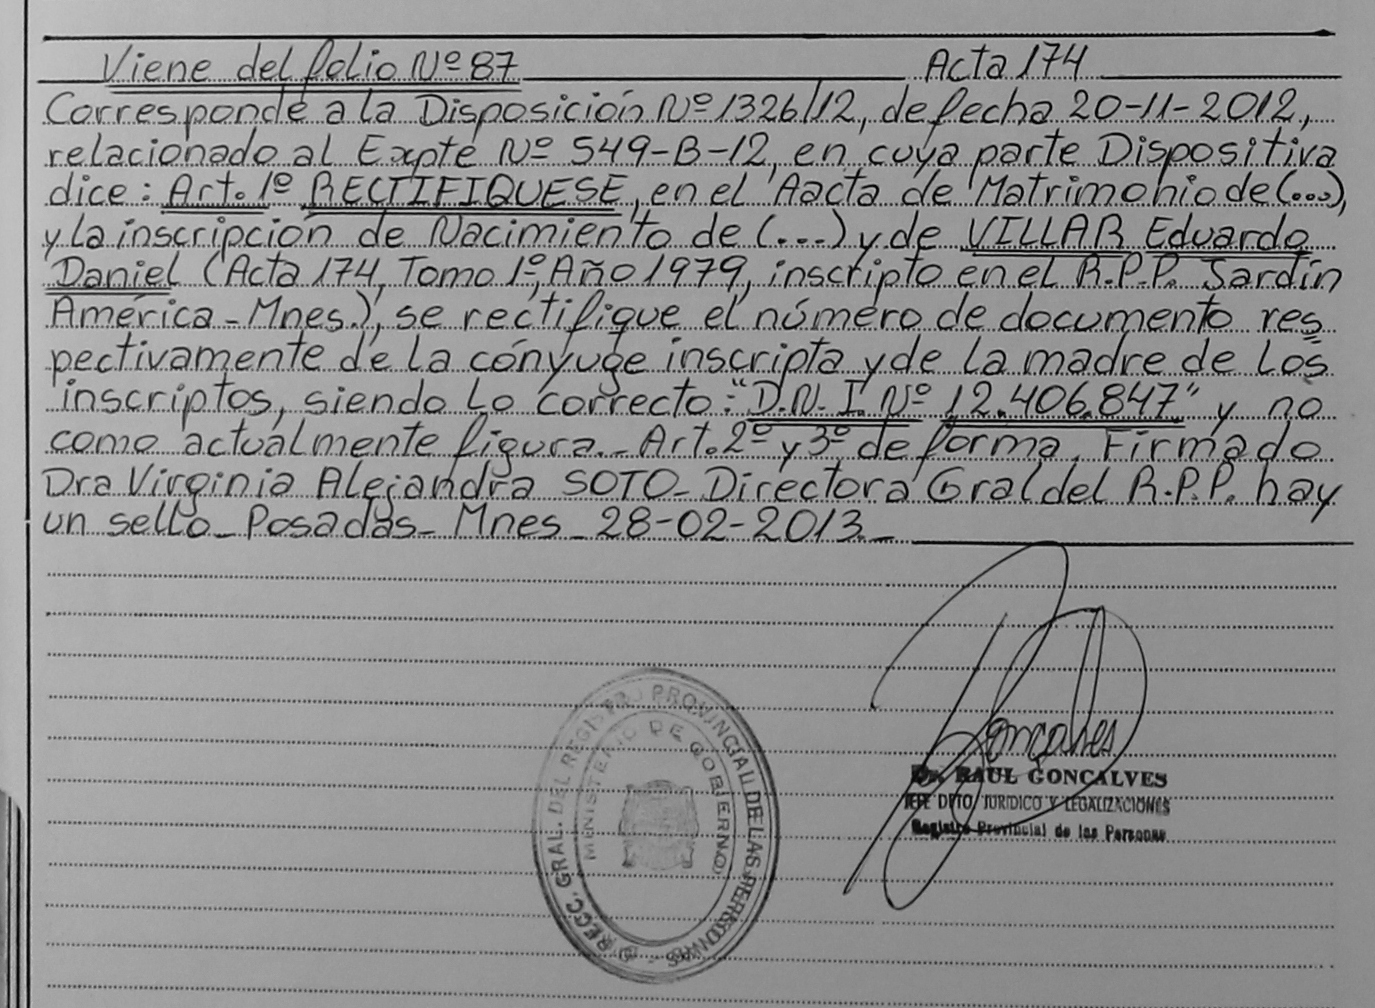 Viene del folio Nº 87 Acta 174
Corresponde a la Disposición Nº 1326/12, de fecha 20-11-2012,
relacionado al Expte Nº 549-B-12, en cuya parte Dispositiva
dice: Art. 1º RECTIFIQUESE, en el Aacta de Matrimonio de (...),
y la inscripción de Nacimiento de (...) y de VILLAR Eduardo
Daniel (Acta 174, Tomo 1º, Año 1979, inscripto en el R.P.P. Jardín
América - Mnes.), se rectifique el número de documento res
pectivamente de la cónyuge inscripta y de la madre de los
inscriptos, siendo lo correcto: "D.N.I. Nº 12.406.847" y no
como actualmente figura.- Art. 2º y 3º de forma. Firmado
Dra Virginia Alejandra SOTO - Directora Gral del R.P.P. hay
un sello - Posadas - Mnes - 28-02-2013.-
Goncalves
Dr. RAUL GONCALVES
JEFE DPTO JURIDICO Y LEGALIZACIONES
Registro Provincial de las Personas
DIRECC. GRAL. DEL REGISTRO PROVINCIAL DE LAS PERSONAS
MINISTERIO DE GOBIERNO